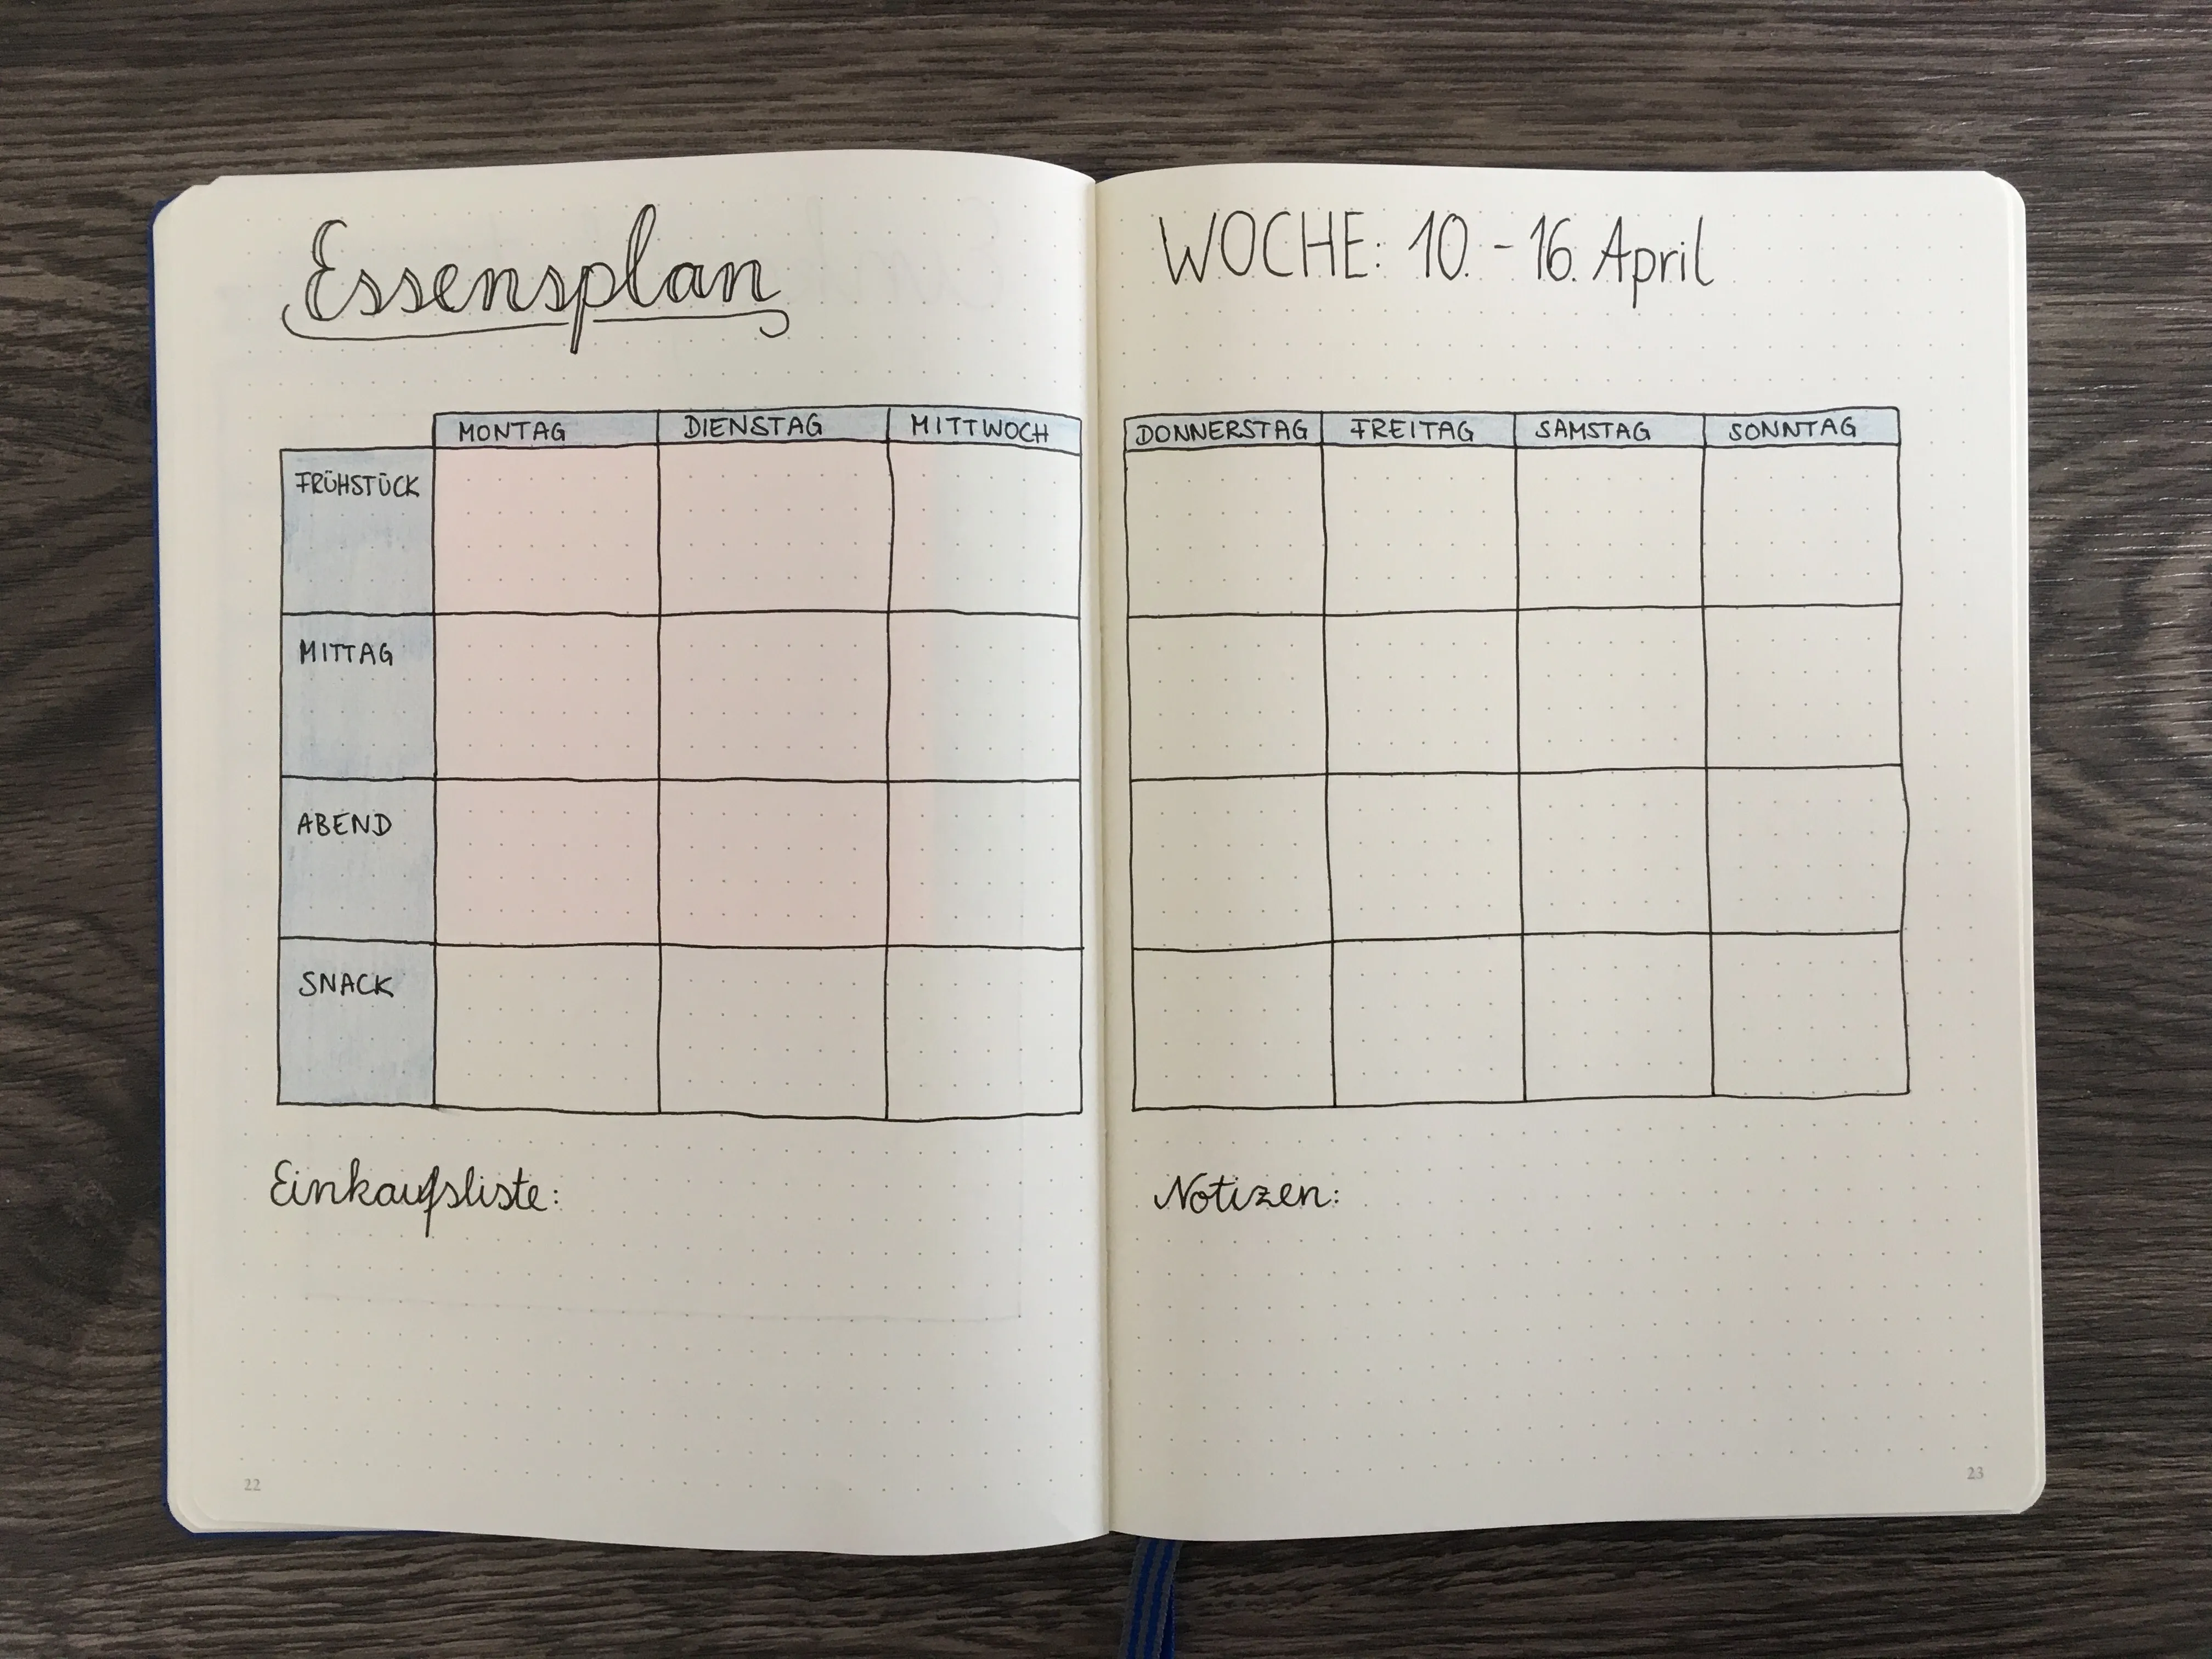 Essensplan
WOCHE: 10. - 16. April
MONTAG DIENSTAG MITTWOCH DONNERSTAG FREITAG SAMSTAG SONNTAG
FRÜHSTÜCK
MITTAG
ABEND
SNACK
Einkaufsliste:
Notizen:
22
23